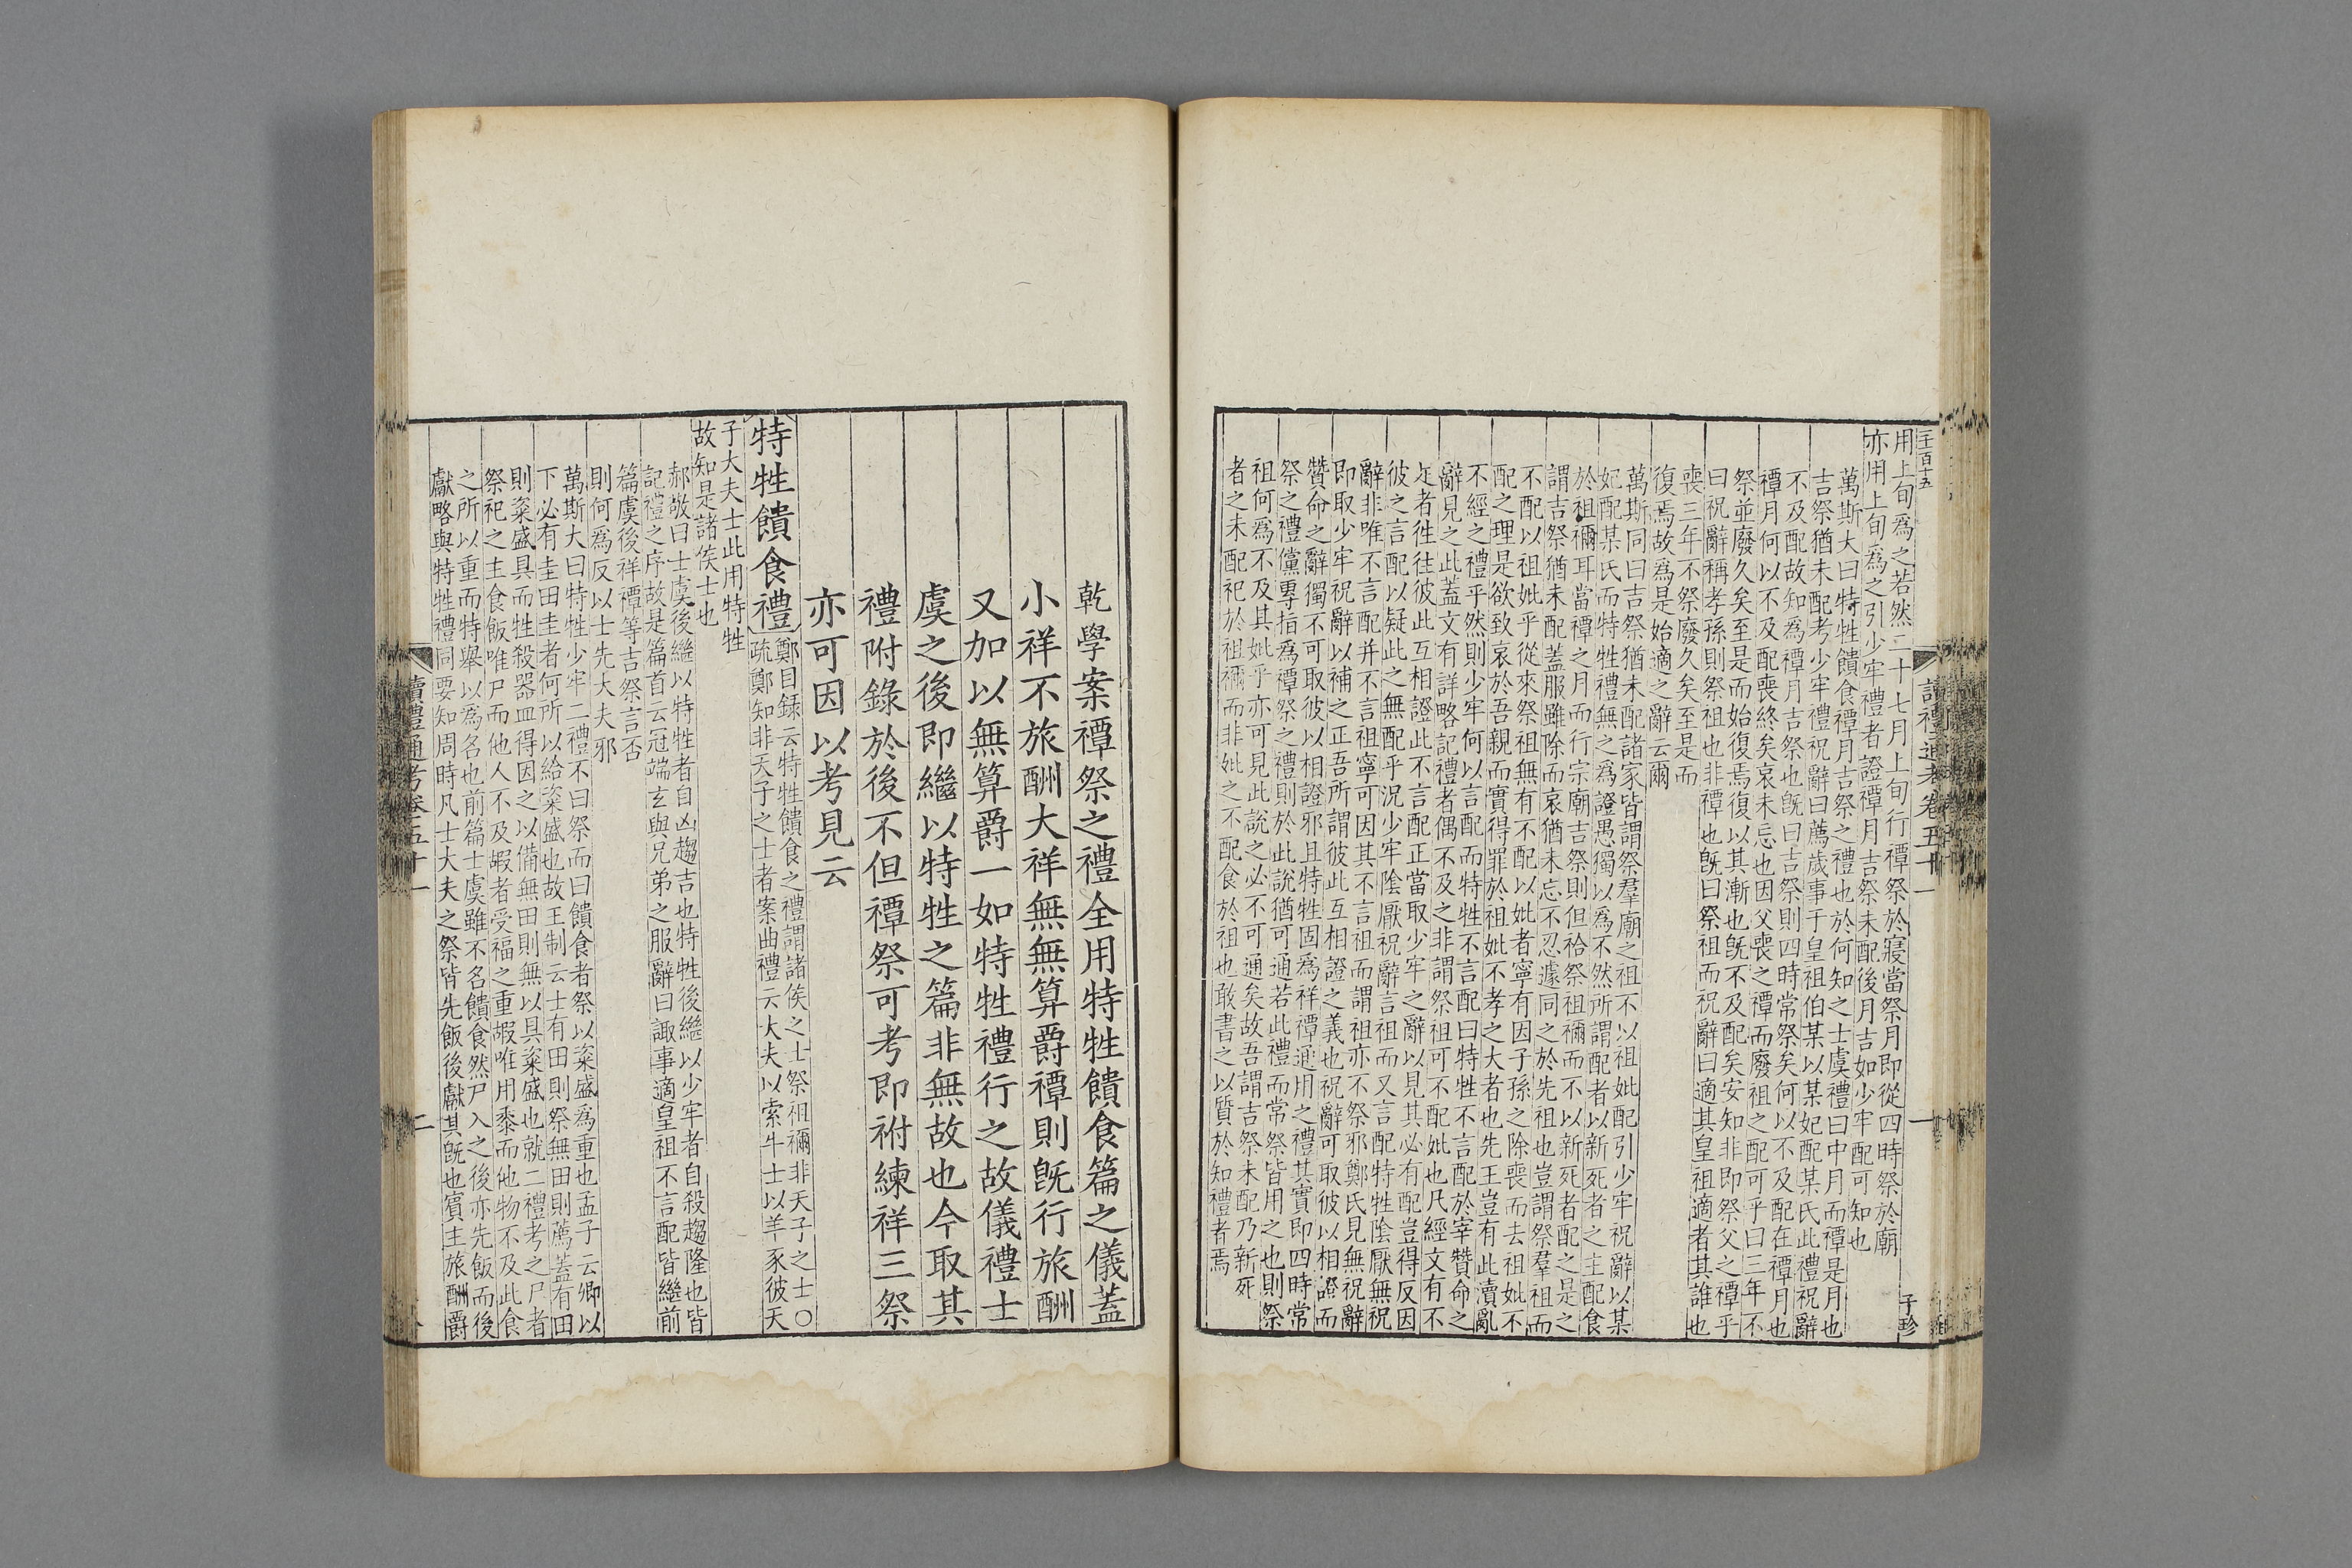 三百十五
用上旬爲之若然二十七月上旬行禫祭於寢當祭月即從四時祭於廟
亦用上旬爲之引少牢禮者證禫月吉祭未配後月吉如少牢配可知也
萬斯大曰特牲饋食禫月吉祭之禮也於何知之士虞禮曰中月而禫是月也
吉祭猶未配考少牢禮祝辭曰薦歲事于皇祖伯某以某妃配某氏此禮祝辭
不及配故知爲禫月吉祭也旣曰吉祭則四時常祭矣何以不及配在禫月也
禫月何以不及配喪終矣哀未忘也因父喪之禫而廢祖之配可乎曰三年不
祭並廢久矣至是而始復焉復以其漸也旣不及配矣安知非即祭父之禫乎
曰祝辭稱孝孫則祭祖也非禫也旣曰祭祖而祝辭曰適其皇祖適者其誰也
喪三年不祭廢久矣至是而
復焉故爲是始適之辭云爾
萬斯同曰吉祭猶未配諸家皆謂祭羣廟之祖不以祖妣配引少牢祝辭以某
妃配某氏而特牲禮無之爲證愚獨以爲不然所謂配者以新死者之主配食
於祖禰耳當禫之月而行宗廟吉祭則但祫祭祖禰而不以新死者配之是之
謂吉祭猶未配蓋服雖除而哀猶未忘不忍遽同之於先祖也豈謂祭羣祖而
不配以祖妣乎從來祭祖無有不配以妣者寧有因子孫之除喪而去祖妣不
配之理是欲致哀於吾親而實得罪於祖妣不孝之大者也先王豈有此瀆亂
不經之禮乎然則少牢何以言配而特牲不言配曰特牲不言配於宰贊命之
辭見之此蓋文有詳略記禮者偶不及之非謂祭祖可不配妣也凡經文有不
足者往往彼此互相證此不言配正當取少牢之辭以見其必有配豈得反因
彼之言配以疑此之無配乎況少牢陰厭祝辭言祖而又言配特牲陰厭無祝
辭非唯不言配并不言祖寧可因其不言祖而謂祖亦不祭邪鄭氏見無祝辭
即取少牢祝辭以補之正吾所謂彼此互相證之義也祝辭可取彼以相證而
贊命之辭獨不可取彼以相證邪且特牲固爲祥禫通用之禮其實即四時常
祭之禮儻專指爲禫祭之禮則於此說猶可通若此禮而常祭皆用之也則祭
祖何爲不及其妣乎亦可見此說之必不可通矣故吾謂吉祭未配乃新死
者之未配祀於祖禰而非妣之不配食於祖也敢書之以質於知禮者焉
讀禮通考卷五十一
一
子珍
乾學案禫祭之禮全用特牲饋食篇之儀蓋
小祥不旅酬大祥無無算爵禫則旣行旅酬
又加以無算爵一如特牲禮行之故儀禮士
虞之後即繼以特牲之篇非無故也今取其
禮附錄於後不但禫祭可考即祔練祥三祭
亦可因以考見云
特牲饋食禮
鄭目錄云特牲饋食之禮謂諸侯之士祭祖禰非天子之士〇
疏鄭知非天子之士者案曲禮云大夫以索牛士以羊豕彼天
子大夫士此用特牲
故知是諸侯士也
郝敬曰士虞後繼以特牲者自凶趨吉也特牲後繼以少牢者自殺趨隆也皆
記禮之序故是篇首云冠端玄與兄弟之服辭曰諏事適皇祖不言配皆繼前
篇虞後祥禫等吉祭言否
則何爲反以士先大夫邪
萬斯大曰特牲少牢二禮不曰祭而曰饋食者祭以粢盛爲重也孟子云卿以
下必有圭田圭者何所以給粢盛也故王制云士有田則祭無田則薦蓋有田
則粢盛具而牲殺器皿得因之以備無田則無以具粢盛也就二禮考之尸者
祭祀之主食飯唯尸而他人不及嘏者受福之重嘏唯用黍而他物不及此食
之所以重而特舉以爲名也前篇士虞雖不名饋食然尸入之後亦先飯而後
獻略與特牲禮同要知周時凡士大夫之祭皆先飯後獻其旣也賓主旅酬爵
讀禮通考卷五十一
二